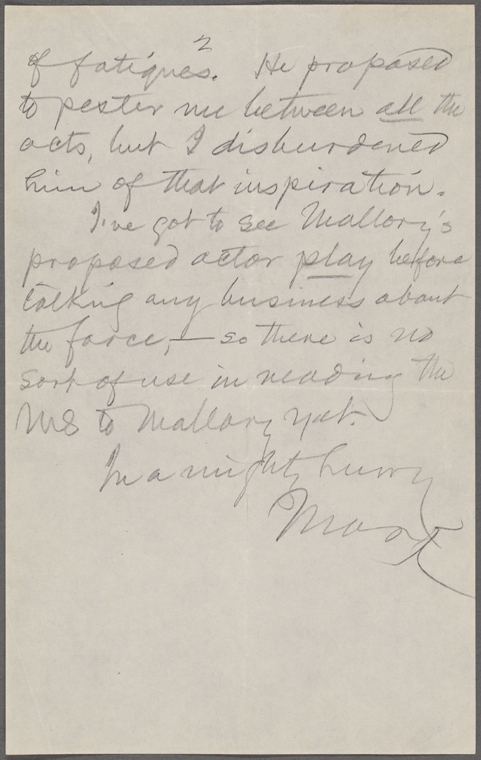 2
of fatigues. He proposed
to pester me between all the
acts, but I disburdened
him of that inspiration.
I've got to see Mallory's
proposed actor play before
talking any business about
the farce,— so there is no
sort of use in reading the
MS to Mallory yet.
In a mighty hurry
Mark